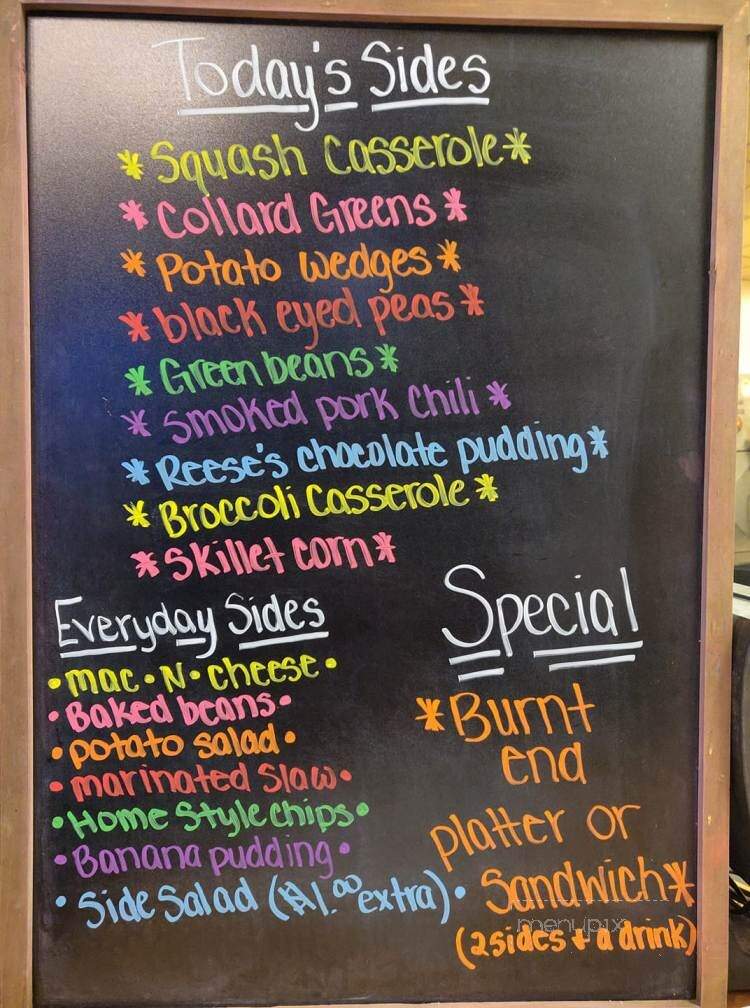 Today's Sides
*Squash Casserole*
*Collard Greens*
*Potato Wedges*
*black eyed peas*
*Green beans*
*Smoked pork Chili*
*Reese's chocolate pudding*
*Broccoli Casserole*
*Skillet corn*
Everyday Sides
•mac•N•cheese•
•Baked beans•
•potato salad•
•marinated Slaw•
•Home Style chips•
•Banana pudding•
•Side Salad ($1.00 extra)•
Special
*Burnt
end
platter or
Sandwich*
(2sides + a drink)
menupix